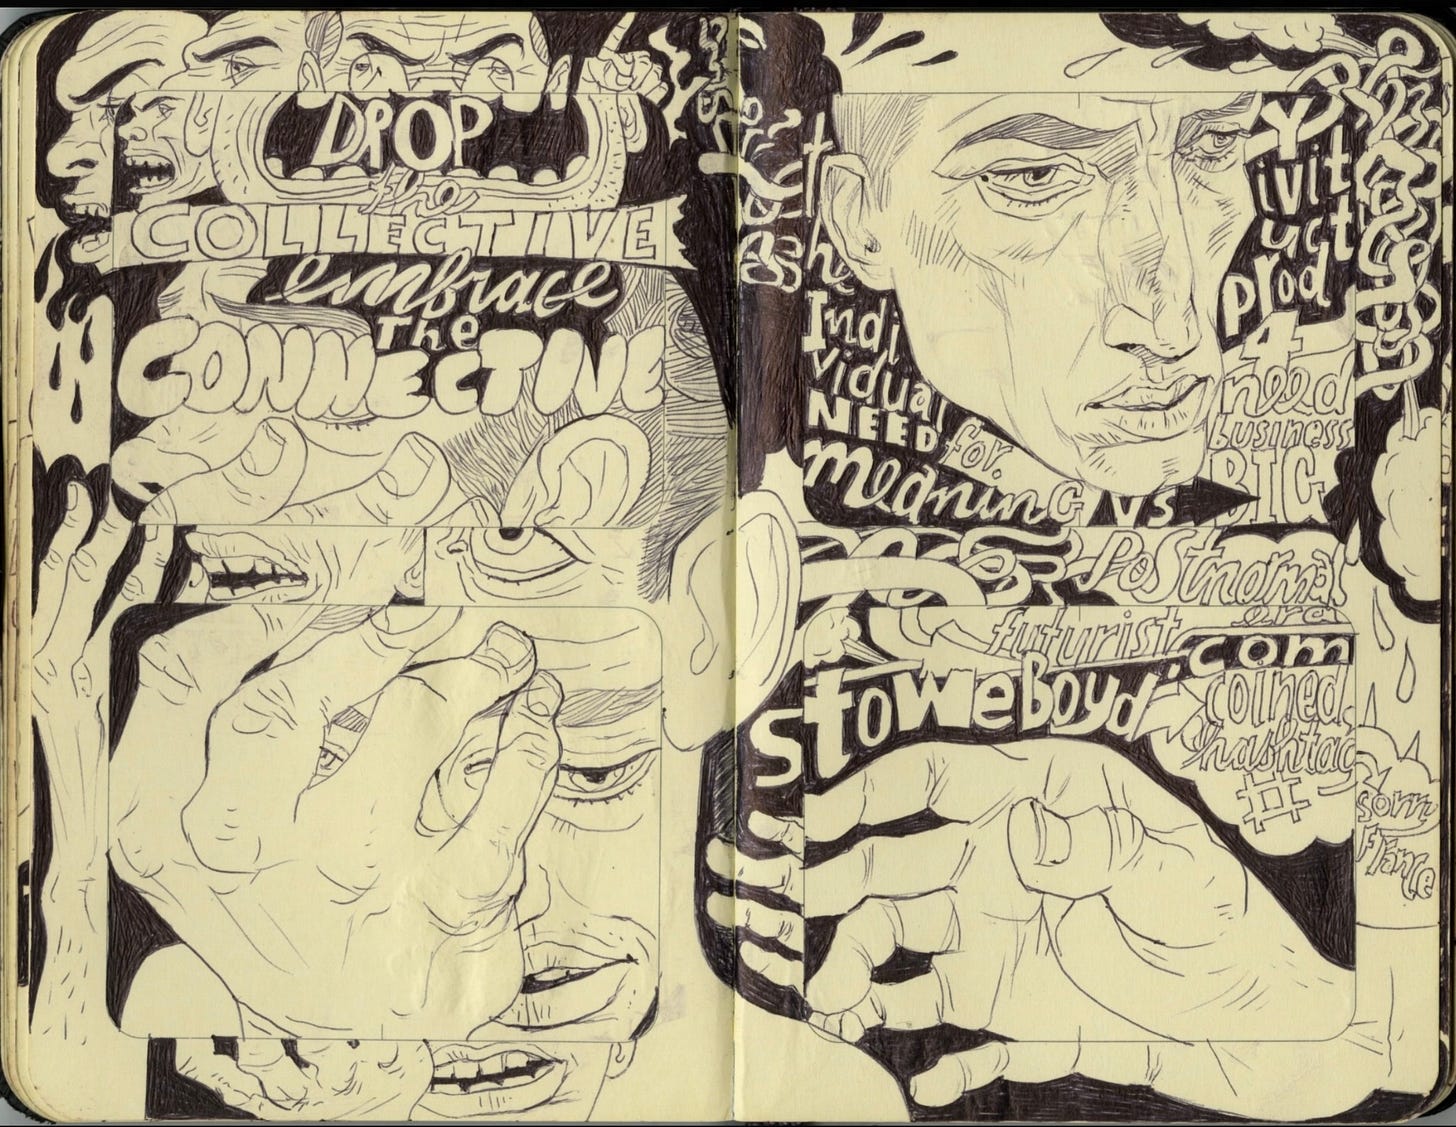 DROP
the
COLLECTIVE
embrace
The
CONNECTIVE
the
Indi
vidual
NEED
for
meaning vs BIG
business
need
4
prod
uct
ivit
Y
Postnormal
era
futurist
stoweBoyd.com
coined
hashtag
#
sorry
France